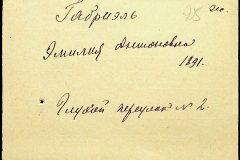 Габриэль 25 Дес.
Эмилия Антоновна
1891.
Глухой переулок № 2